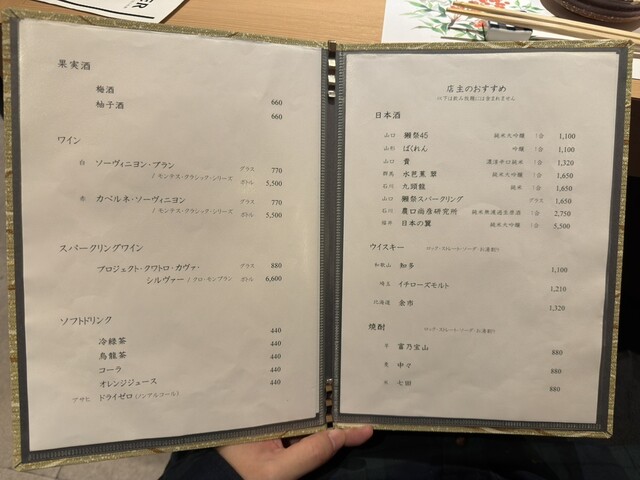 果実酒
梅酒 660
柚子酒 660
ワイン
白 ソーヴィニヨン・ブラン グラス 770
/ モンテス・クラシック・シリーズ ボトル 5,500
赤 カベルネ・ソーヴィニヨン グラス 770
/ モンテス・クラシック・シリーズ ボトル 5,500
スパークリングワイン
プロジェクト・クワトロ・カヴァ・ グラス 880
シルヴァー / クロ・モンブラン ボトル 6,600
ソフトドリンク
冷緑茶 440
烏龍茶 440
コーラ 440
オレンジジュース 440
アサヒ ドライゼロ (ノンアルコール) 440
店主のおすすめ
以下は飲み放題には含まれません
日本酒
山口 獺祭45 純米大吟醸 1合 1,100
山形 ばくれん 吟醸 1合 1,100
山口 貴 濃淳辛口純米 1合 1,320
群馬 水芭蕉 翠 純米大吟醸 1合 1,650
石川 九頭龍 純米 1合 1,650
山口 獺祭スパークリング グラス 1,650
石川 農口尚彦研究所 純米無濾過生原酒 1合 2,750
福井 日本の翼 純米大吟醸 1合 5,500
ウイスキー ロック・ストレート・ソーダ・お湯割り
和歌山 知多 1,100
埼玉 イチローズモルト 1,210
北海道 余市 1,320
焼酎 ロック・ストレート・ソーダ・お湯割り
芋 富乃宝山 880
麦 中々 880
米 七田 880